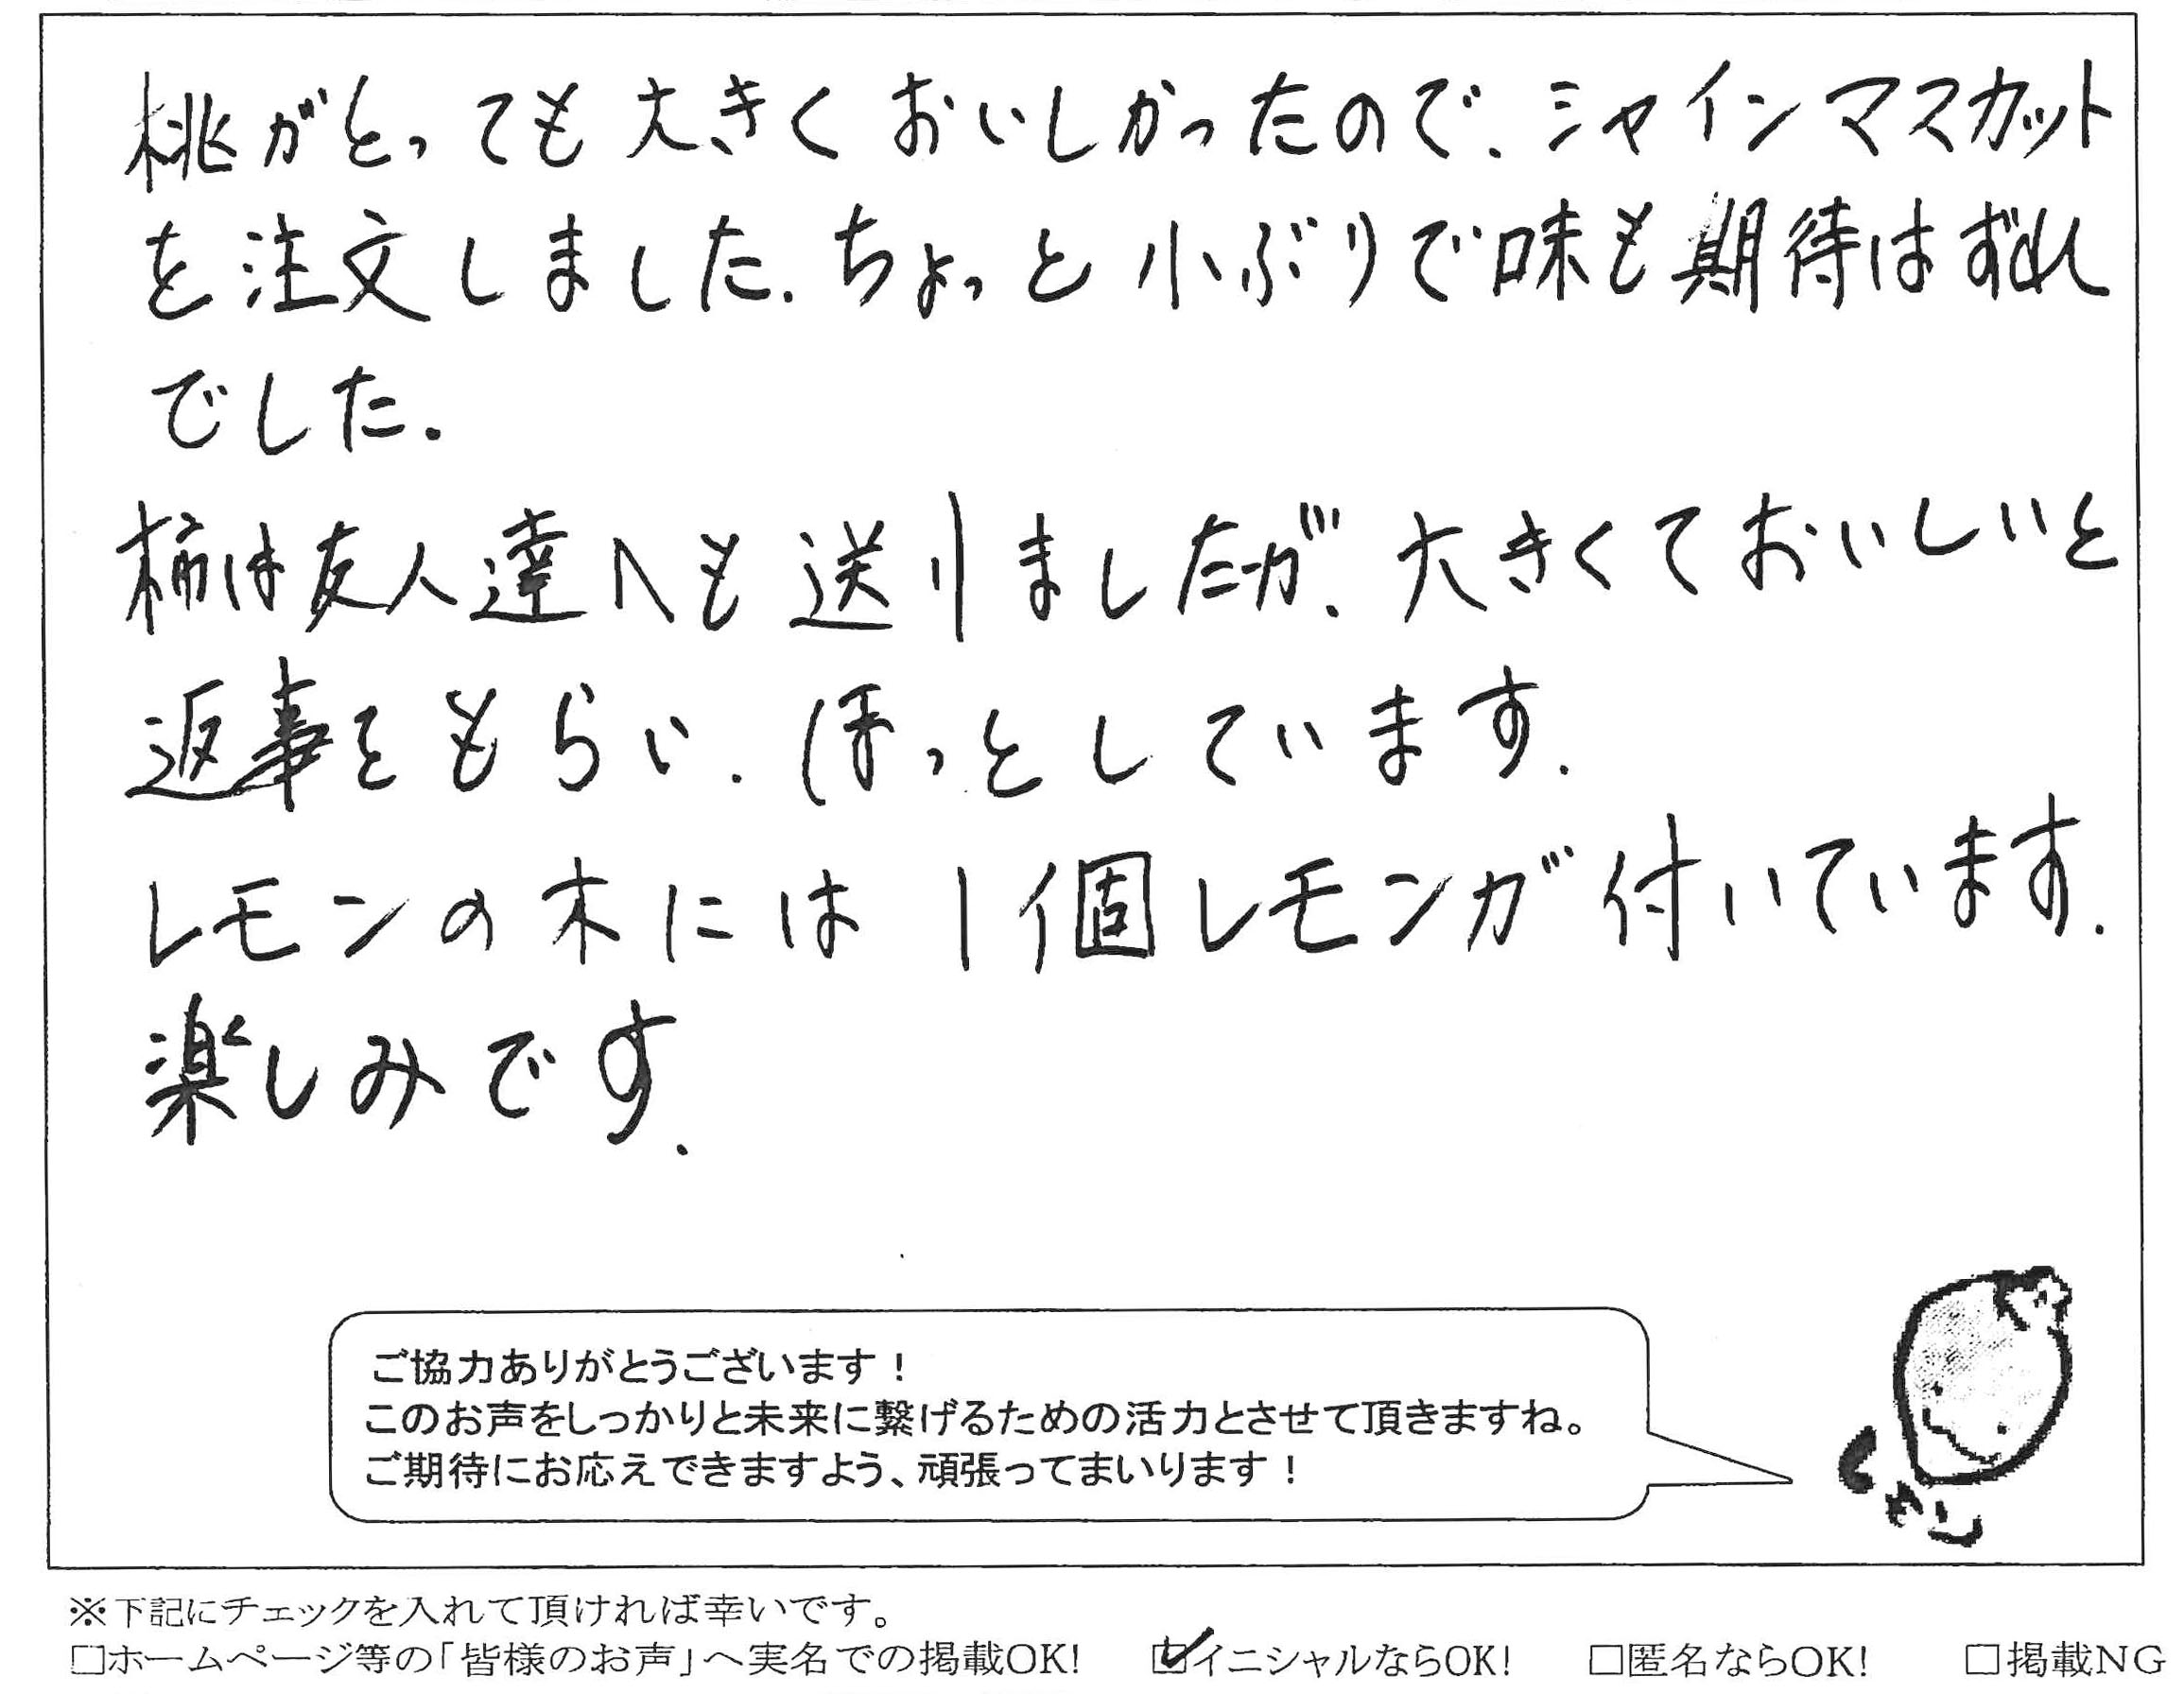 桃がとっても大きくおいしかったので、シャインマスカット
を注文しました。ちょっと小ぶりで味も期待はずれ
でした。
柿は友人達へも送りましたが、大きくておいしいと
返事をもらい、ほっとしています。
レモンの木には1個レモンが付いています。
楽しみです。
ご協力ありがとうございます！
このお声をしっかりと未来に繋げるための活力とさせて頂きますね。
ご期待にお応えできますよう、頑張ってまいります！
※下記にチェックを入れて頂ければ幸いです。
□ホームページ等の「皆様のお声」へ実名での掲載OK! ☑イニシャルならOK! □匿名ならOK! □掲載NG